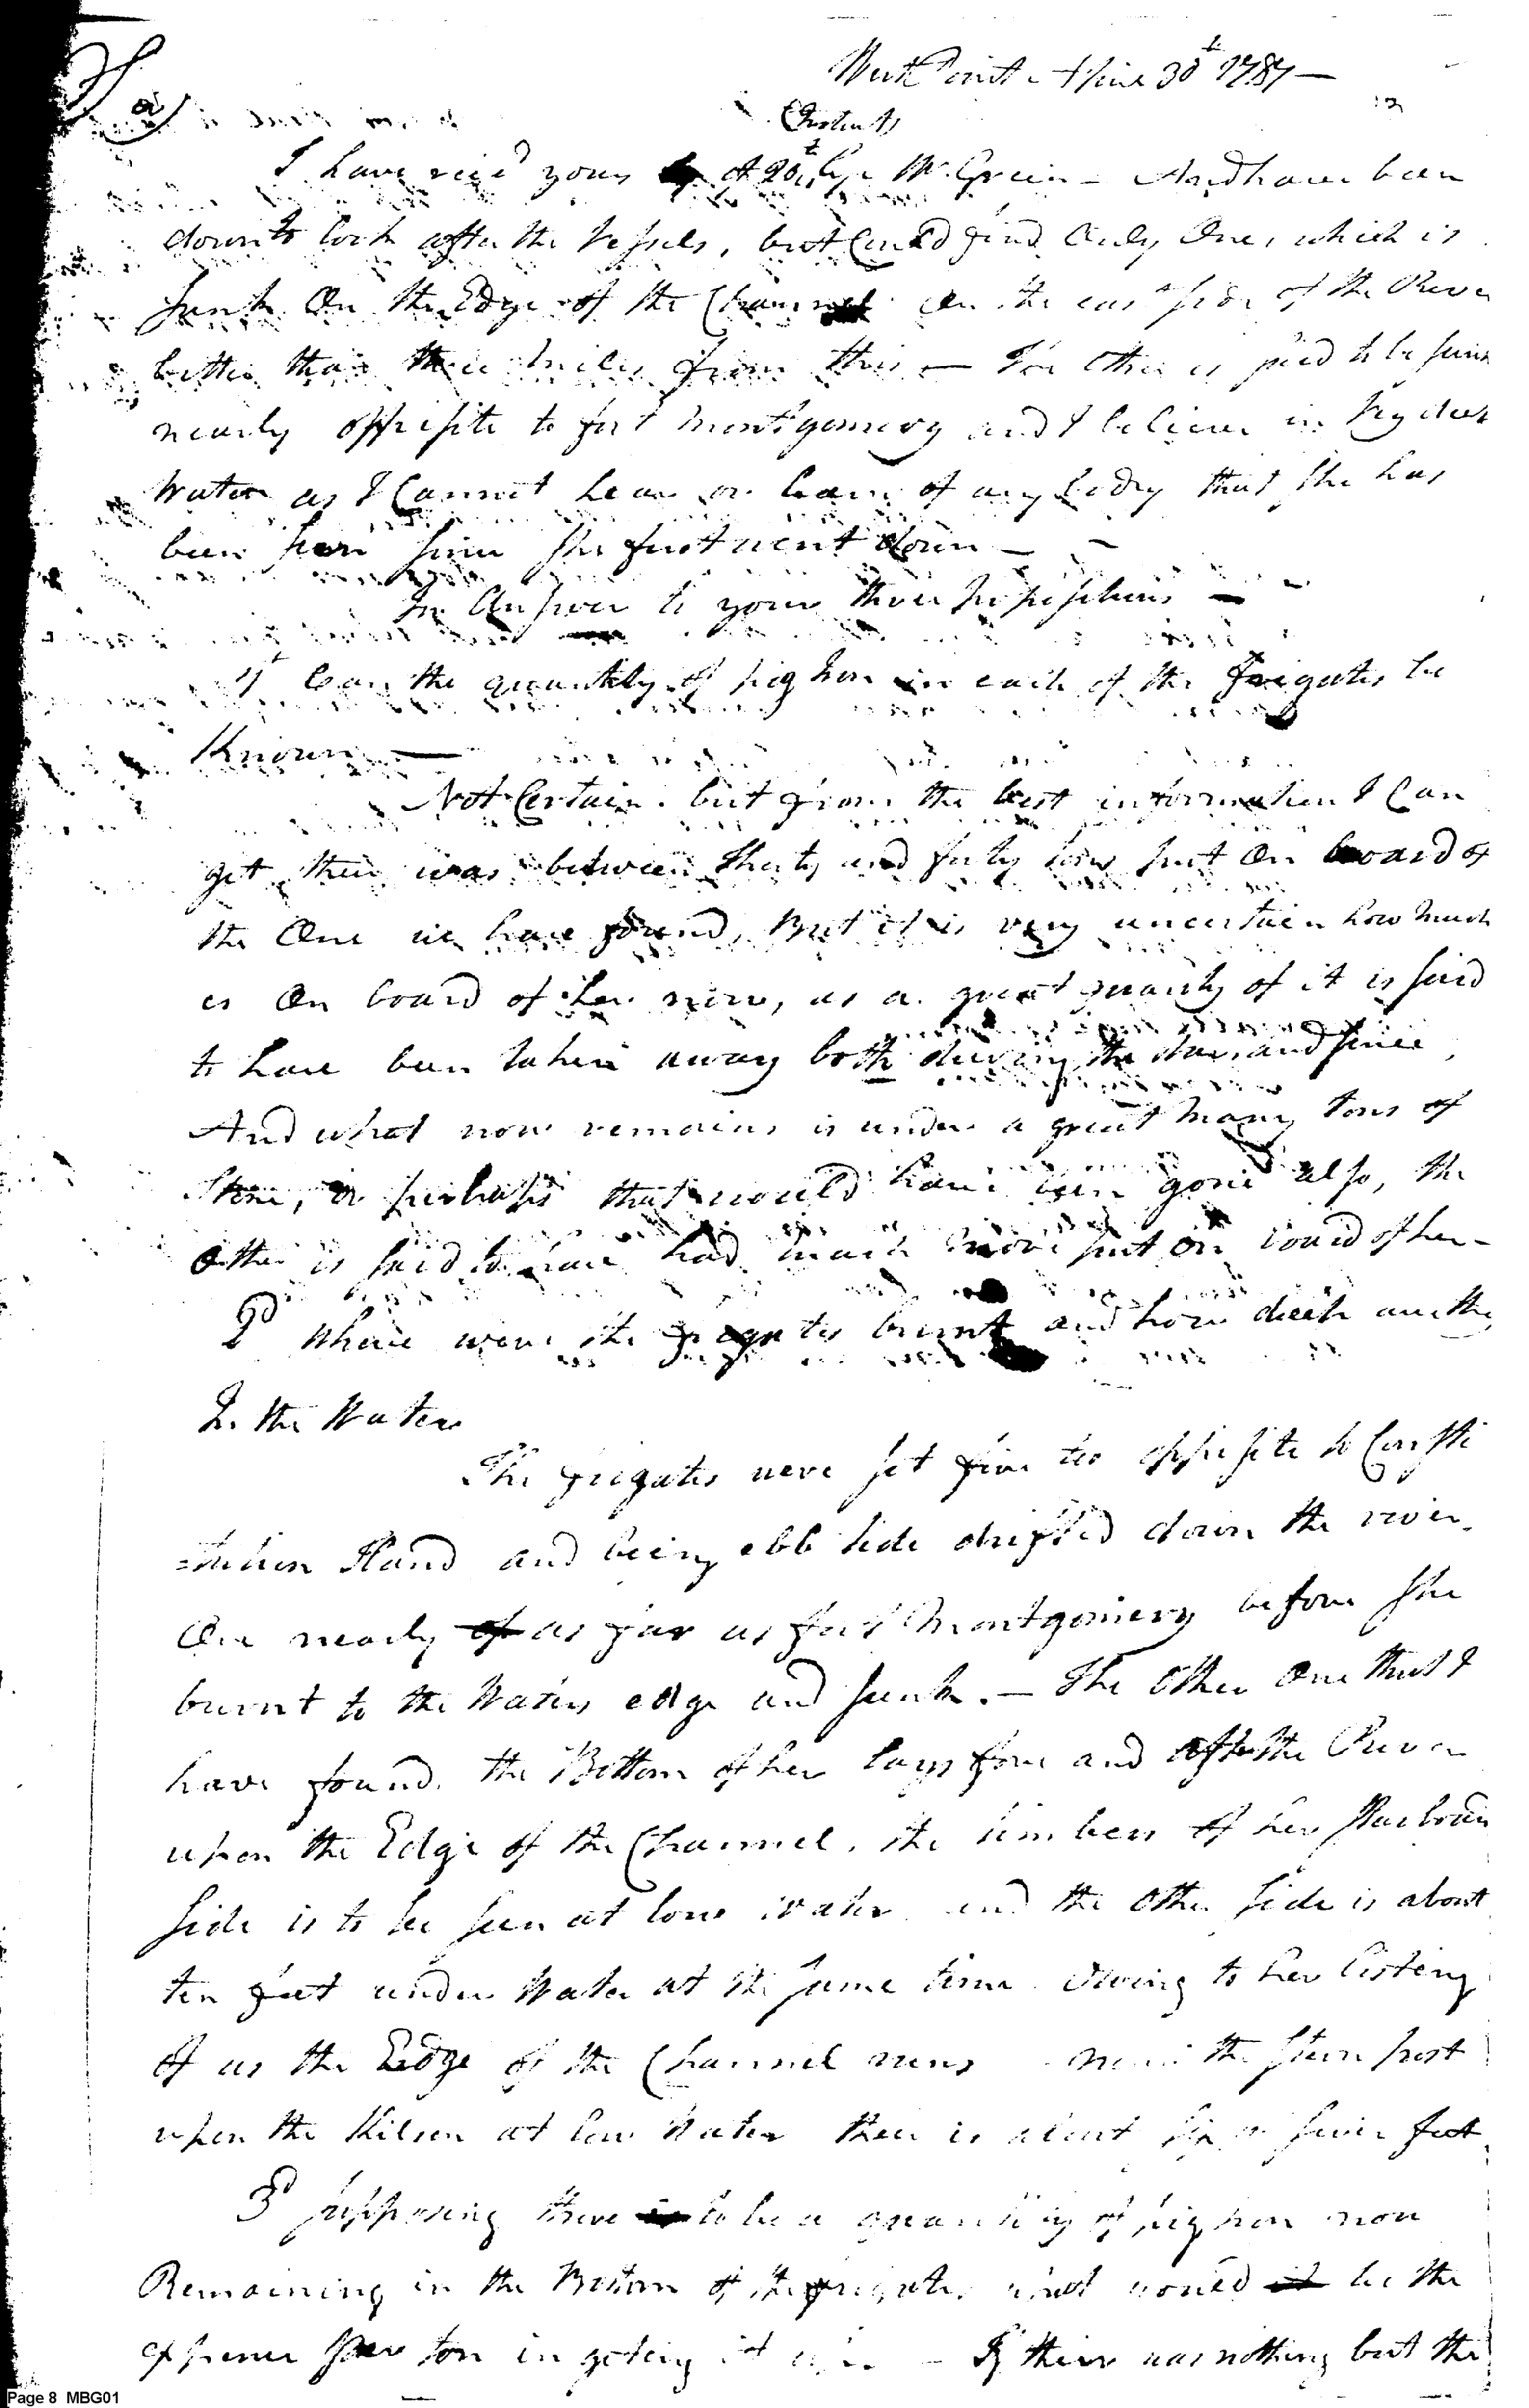 West Point April 30t 1787 —
(Instant)
I have recd yours of 20t by Mr Green — And have been
down to look after the Vessels, but Could find Only One, which is
sunk On the Edge of the Channel On the east side of the River
better than three miles from this — The Other is said to be sunk
nearly opposite to fort Montgomery and I believe in very deep
Water as I Cannot hear or learn of any body that she has
been seen since she first went down —
In Answer to your three propositions —
1st Can the quantity of pig Iron in each of the frigates be
Known —
Not Certain. but from the best information I Can
get their was between thirty and forty tons put On board of
the One we have found, But it is very uncertain how much
is On board of her now, as a great quanty of it is said
to have been taken away both during the War and since,
And what now remains is under a great many tons of
Stone, or perhaps that would have been gone also, the
Other is said to have had much more put on board of her —
2d Where were the frigates burnt and how deep are they
In the Water
The frigates were set fire to opposite to Consti
=tution Iland and being ebb tide drifted down the river.
One nearly as far as fort Montgomery before she
burnt to the Waters edge and sunk. — The Other One that I
have found. the Bottom of her lays fore and aft the River
upon the Edge of the Channel, the timbers of her Starboard
side is to be seen at low water and the Other side is about
ten feet under Water at the same time Owing to her listing
of as the Edge of the Channel runs near the stern post
upon the Kilson at low Water their is about six or seven feet
3d supposing there to be a quantity of pig Iron now
Remaining in the Bottom of the frigates what would be the
expence per ton in geting it up — If their was nothing but the
Page 8 MBG01